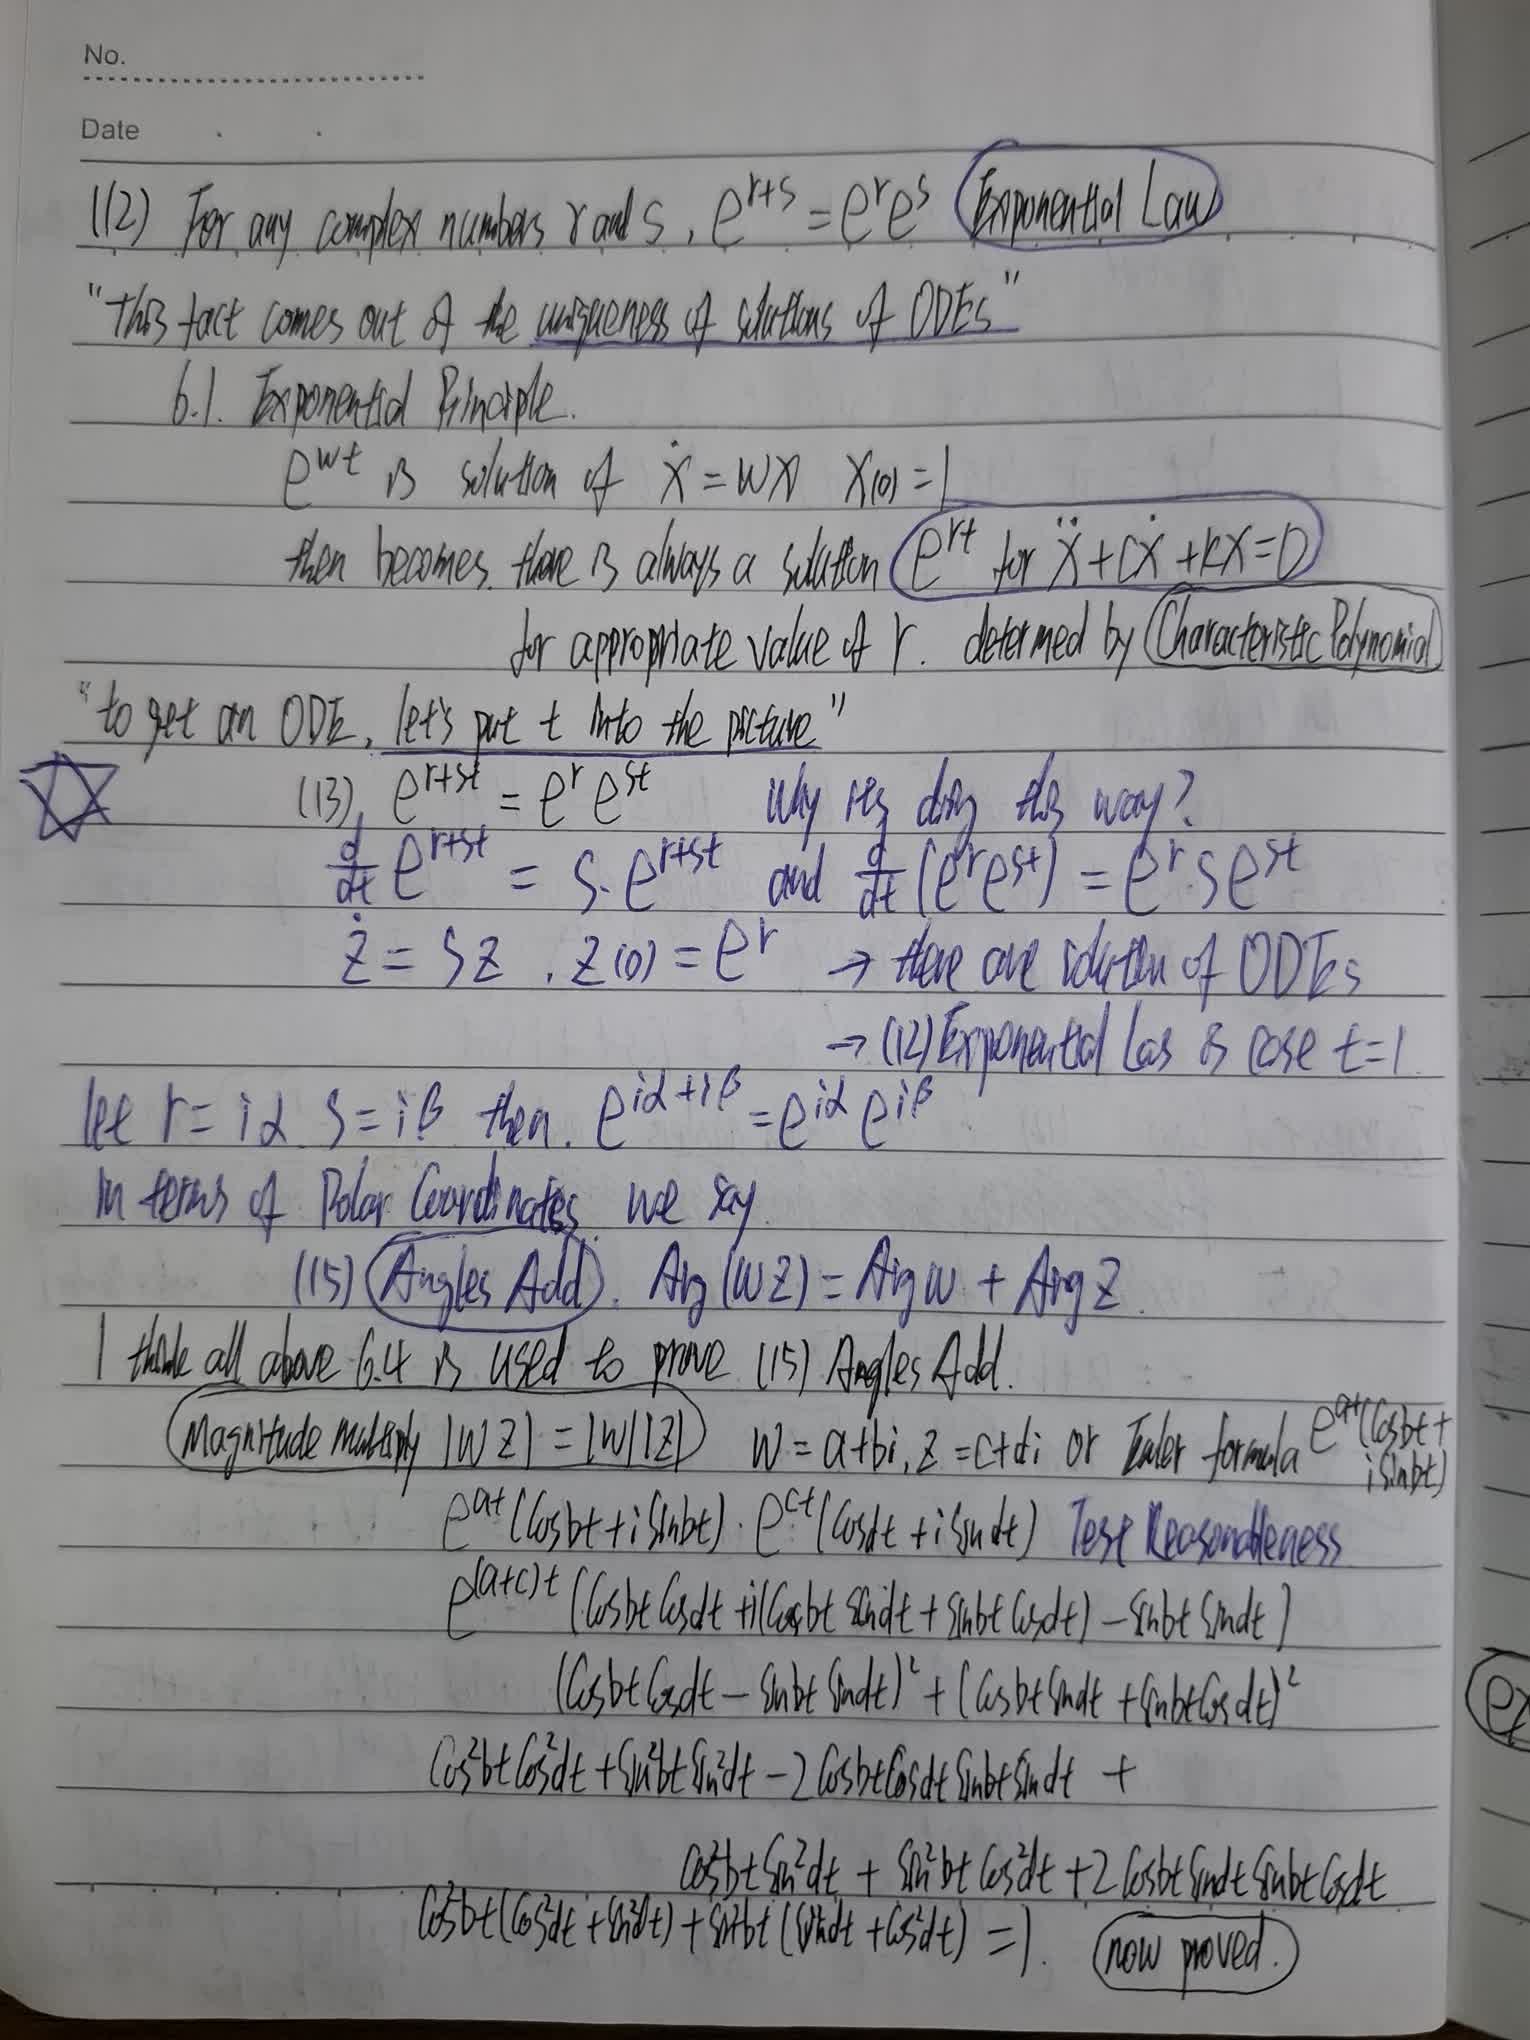 No.
Date
(12) For any complex numbers r and s, e^{r+s} = e^r e^s Exponential Law
"this fact comes out of the uniqueness of solutions of ODEs"
6.1. Exponential Principle.
e^{wt} is solution of ẋ = wx x(0) = 1
then becomes. there is always a solution e^{rt} for ẍ + cẋ + kx = 0
for appropriate value of r. determed by Characteristic Polynomial
"to get an ODE, let's put t into the picture"
(13), e^{r+st} = e^r e^{st} Why its doing this way?
d/dt e^{r+st} = s·e^{r+st} and d/dt (e^r e^{st}) = e^r·s e^{st}
ż = sz . z(0) = e^r → there are solution of ODEs
→ (12) Exponential Las is case t=1.
let r = iα s = iβ then. e^{iα+iβ} = e^{iα} e^{iβ}
In terms of Polar Coordinates we say.
(15) Angles Add. Arg(wz) = Arg w + Arg z.
I think all above 6.4 is used to prove (15) Angles Add.
Magnitude multiply |wz| = |w||z| w = a+bi, z = c+di or Euler formula e^{at}(cosbt +
i sinbt)
e^{at}(cosbt + i sinbt) · e^{ct}(cosdt + i sindt) Test Reasonableness
e^{(a+c)t} (cosbt cosdt + i(cosbt sindt + sinbt cosdt) - sinbt sindt)
(cosbt cosdt - sinbt sindt)² + (cosbt sindt + sinbt cosdt)²
cos²bt cos²dt + sin²bt sin²dt - 2 cosbt cosdt sinbt sindt +
cos²bt sin²dt + sin²bt cos²dt + 2 cosbt sindt sinbt cosdt
cos²bt (cos²dt + sin²dt) + sin²bt (sin²dt + cos²dt) = 1. now proved.